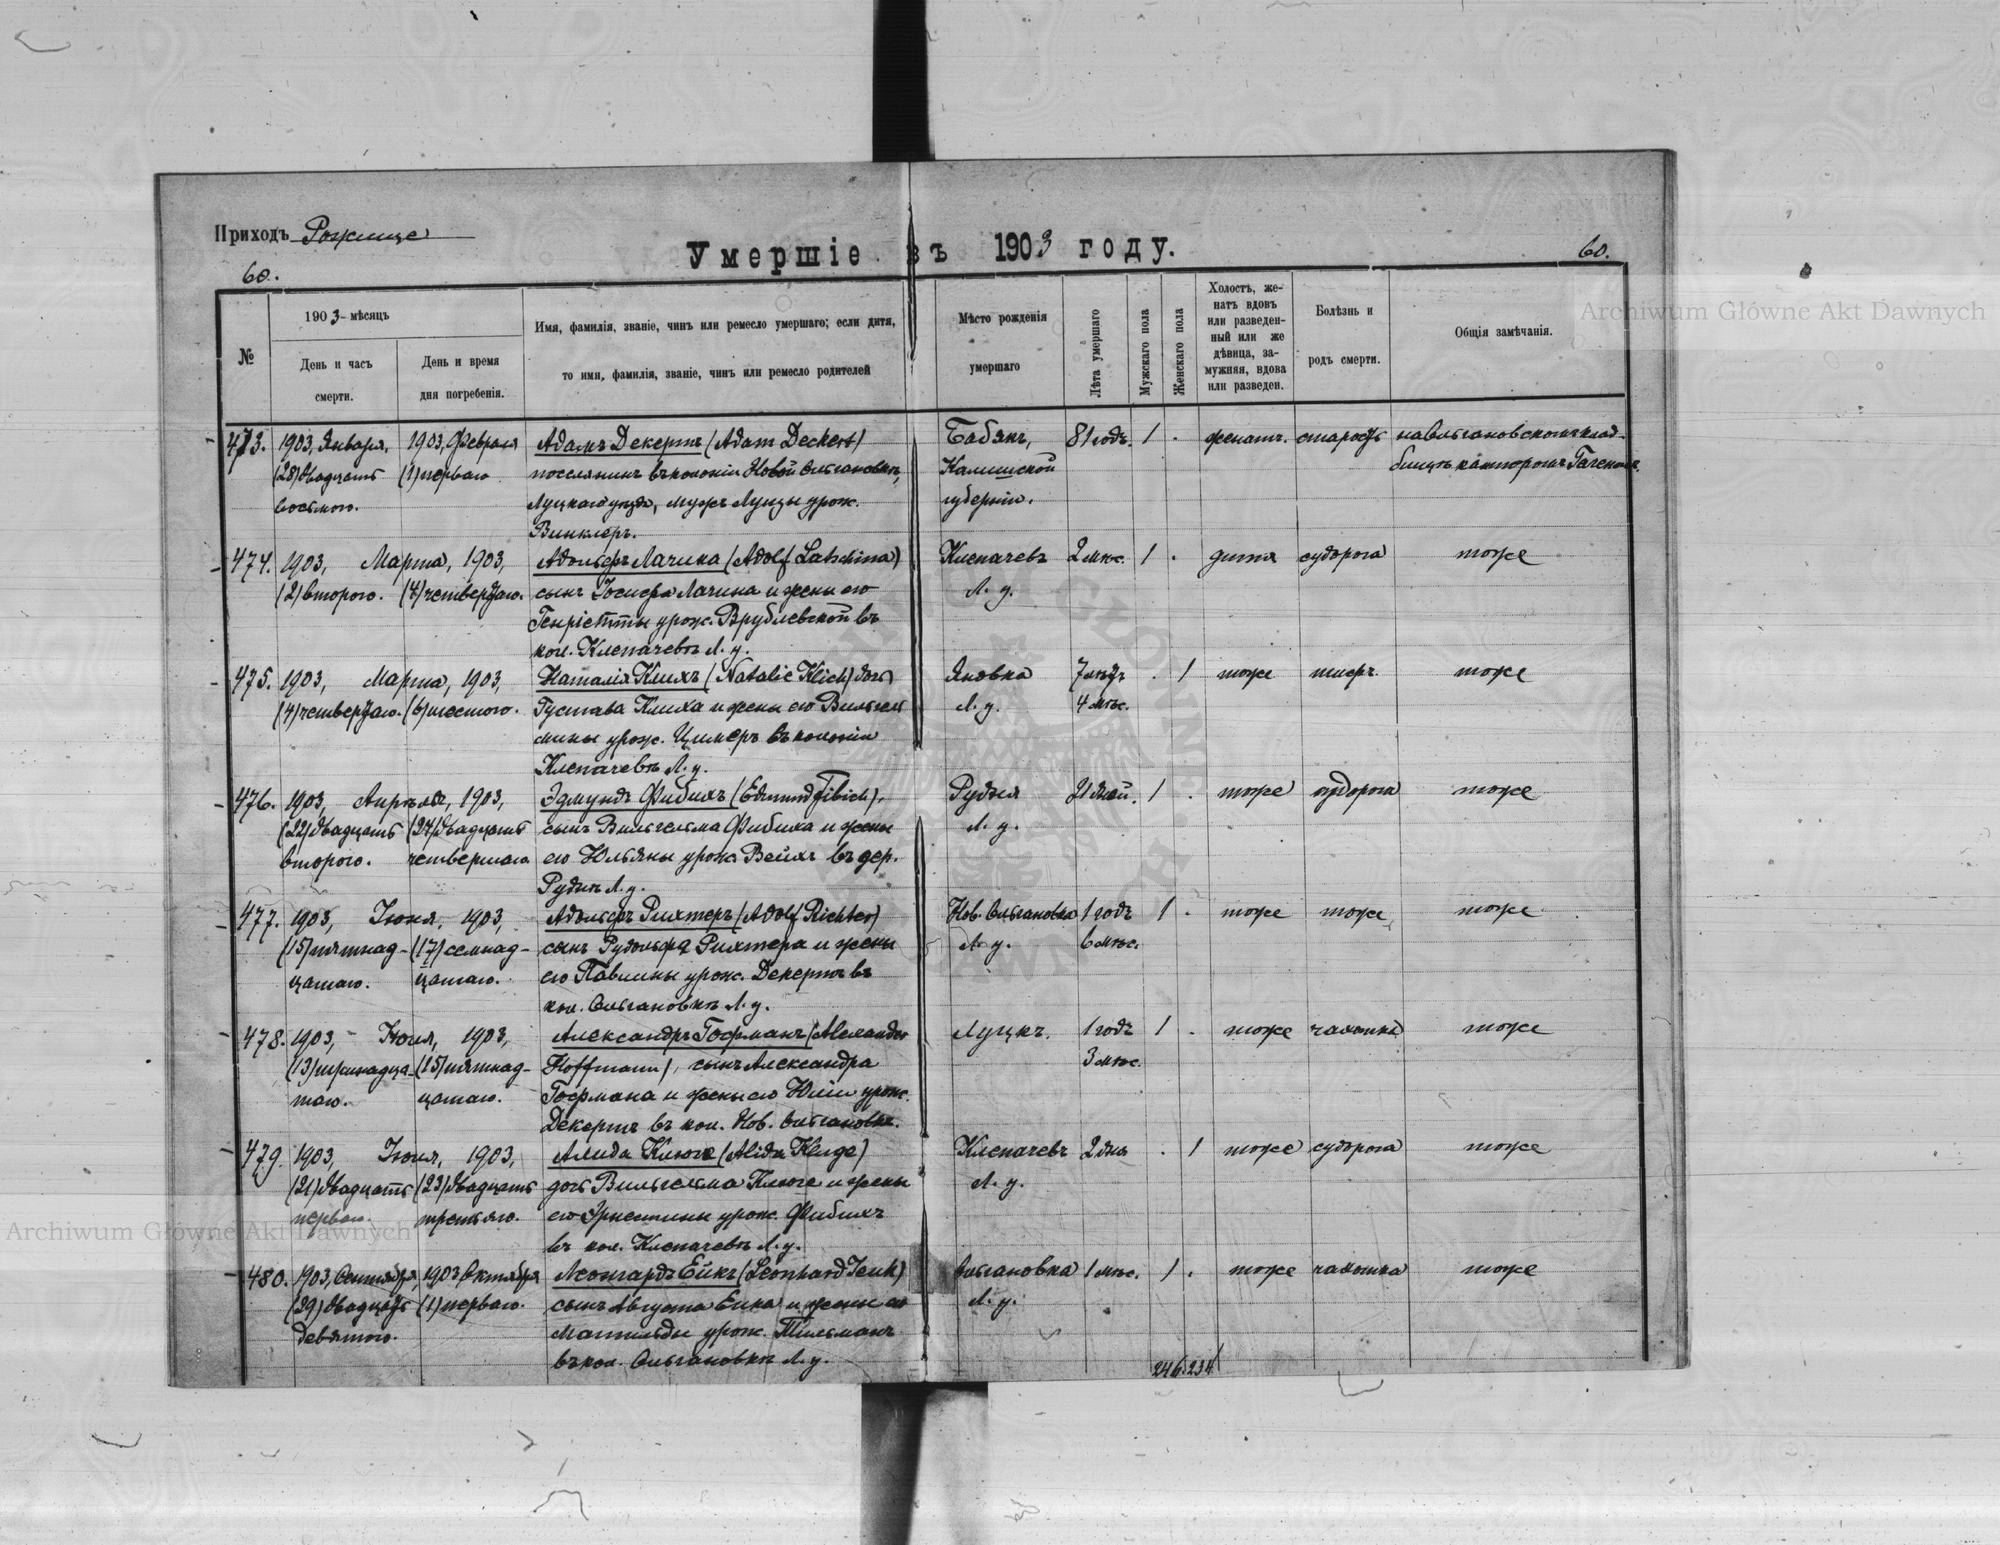 Приходъ Рожище
Умершіе въ 1903 году.
60.
60.
№
1903 - мѣсяцъ
День и часъ смерти.
День и время дня погребенія.
Имя, фамилія, званіе, чинъ или ремесло умершаго; если дитя,
то имя, фамилія, званіе, чинъ или ремесло родителей
Мѣсто рожденія умершаго
Лѣта умершаго
Мужскаго пола
Женскаго пола
Холостъ, же-
натъ вдовъ
или разведен-
ный или же
дѣвица, за-
мужняя, вдова
или разведен.
Болѣзнь и родъ смерти.
Общія замѣчанія.
Archiwum Główne Akt Dawnych
473. 1903, Января, 1903, Февраля Адамъ Декертъ (Adam Deckert) Бабякъ, 81 годъ. 1 . женатъ. старость на Ольгановскомъ клад-
(28) двадцать (1) перваго поселянинъ въ колоніи Новой Ольгановкѣ, Калишской бищѣ канторомъ
восьмого. Луцкаго уѣзда, мужъ Луизы урож. губерніи.
Винклеръ.
474. 1903, Марта, 1903, Адольфъ Лачина (Adolf Latschina) Клепачевъ 2 мѣс. 1 . дитя судорога тоже
(2) второго. (4) четвертаго. сынъ Іосифа Лачина и жены его Л. у.
Генріетты урож. Врублевской въ
кол. Клепачевѣ Л. у.
475. 1903, Марта, 1903, Наталія Клихъ (Natalie Klich) дочь Яновка 7 лѣтъ . 1 тоже тифъ. тоже
(4) четвертаго. (6) шестого. Густава Клиха и жены его Вильгель Л. у. 4 мѣс.
мины урож. Цимеръ въ колоніи
Клепачевѣ Л. у.
476. 1903, Апрѣля, 1903, Эдмундъ Фибихъ (Edmund Fibich), Рудня 21 дней. 1 . тоже судорога тоже
(22) двадцать (24) двадцать сынъ Вильгельма Фибиха и жены Л. у.
второго. четвертаго его Юльяны урож. Вейхъ въ дер.
Руднѣ Л. у.
477. 1903, Іюня, 1903, Адольфъ Рихтеръ (Adolf Richter) Нов. Ольгановка 1 годъ 1 . тоже тоже тоже
(15) пятнад- (17) семнад- сынъ Рудольфа Рихтера и жены Л. у. 6 мѣс.
цатаго. цатаго. его Павлины урож. Декертъ въ
кол. Ольгановкѣ Л. у.
478. 1903, - Іюля, 1903, Александръ Гофманъ (Alexander Луцкъ. 1 годъ 1 . тоже чахотка тоже
(13) тринадца- (15) пятнад- Hoffmann), сынъ Александра 3 мѣс.
таго. цатаго. Гофмана и жены его Юліи урож.
Декертъ въ кол. Нов. Ольгановкѣ.
479. 1903, Іюля, 1903, Алида Клюге (Alida Kluge) Клепачевъ 2 дня . 1 тоже судорога тоже
(21) двадцать (23) двадцать дочь Вильгельма Клюге и жены Л. у.
перваго. третьяго. его Эрнестины урож. Фибихъ
въ кол. Клепачевѣ Л. у.
Archiwum Główne Akt Dawnych
480. 1903, Сентября, 1903 Октября Леонгардъ Ейкъ (Leonhard Jeuk) Ольгановка 1 мѣс. 1 . тоже чахотка тоже
(29) двадцать (1) перваго. сынъ Августа Ейка и жены его Л. у.
девятого. Матильды урож. Тильманъ
въ кол. Ольгановкѣ Л. у.
246. 234